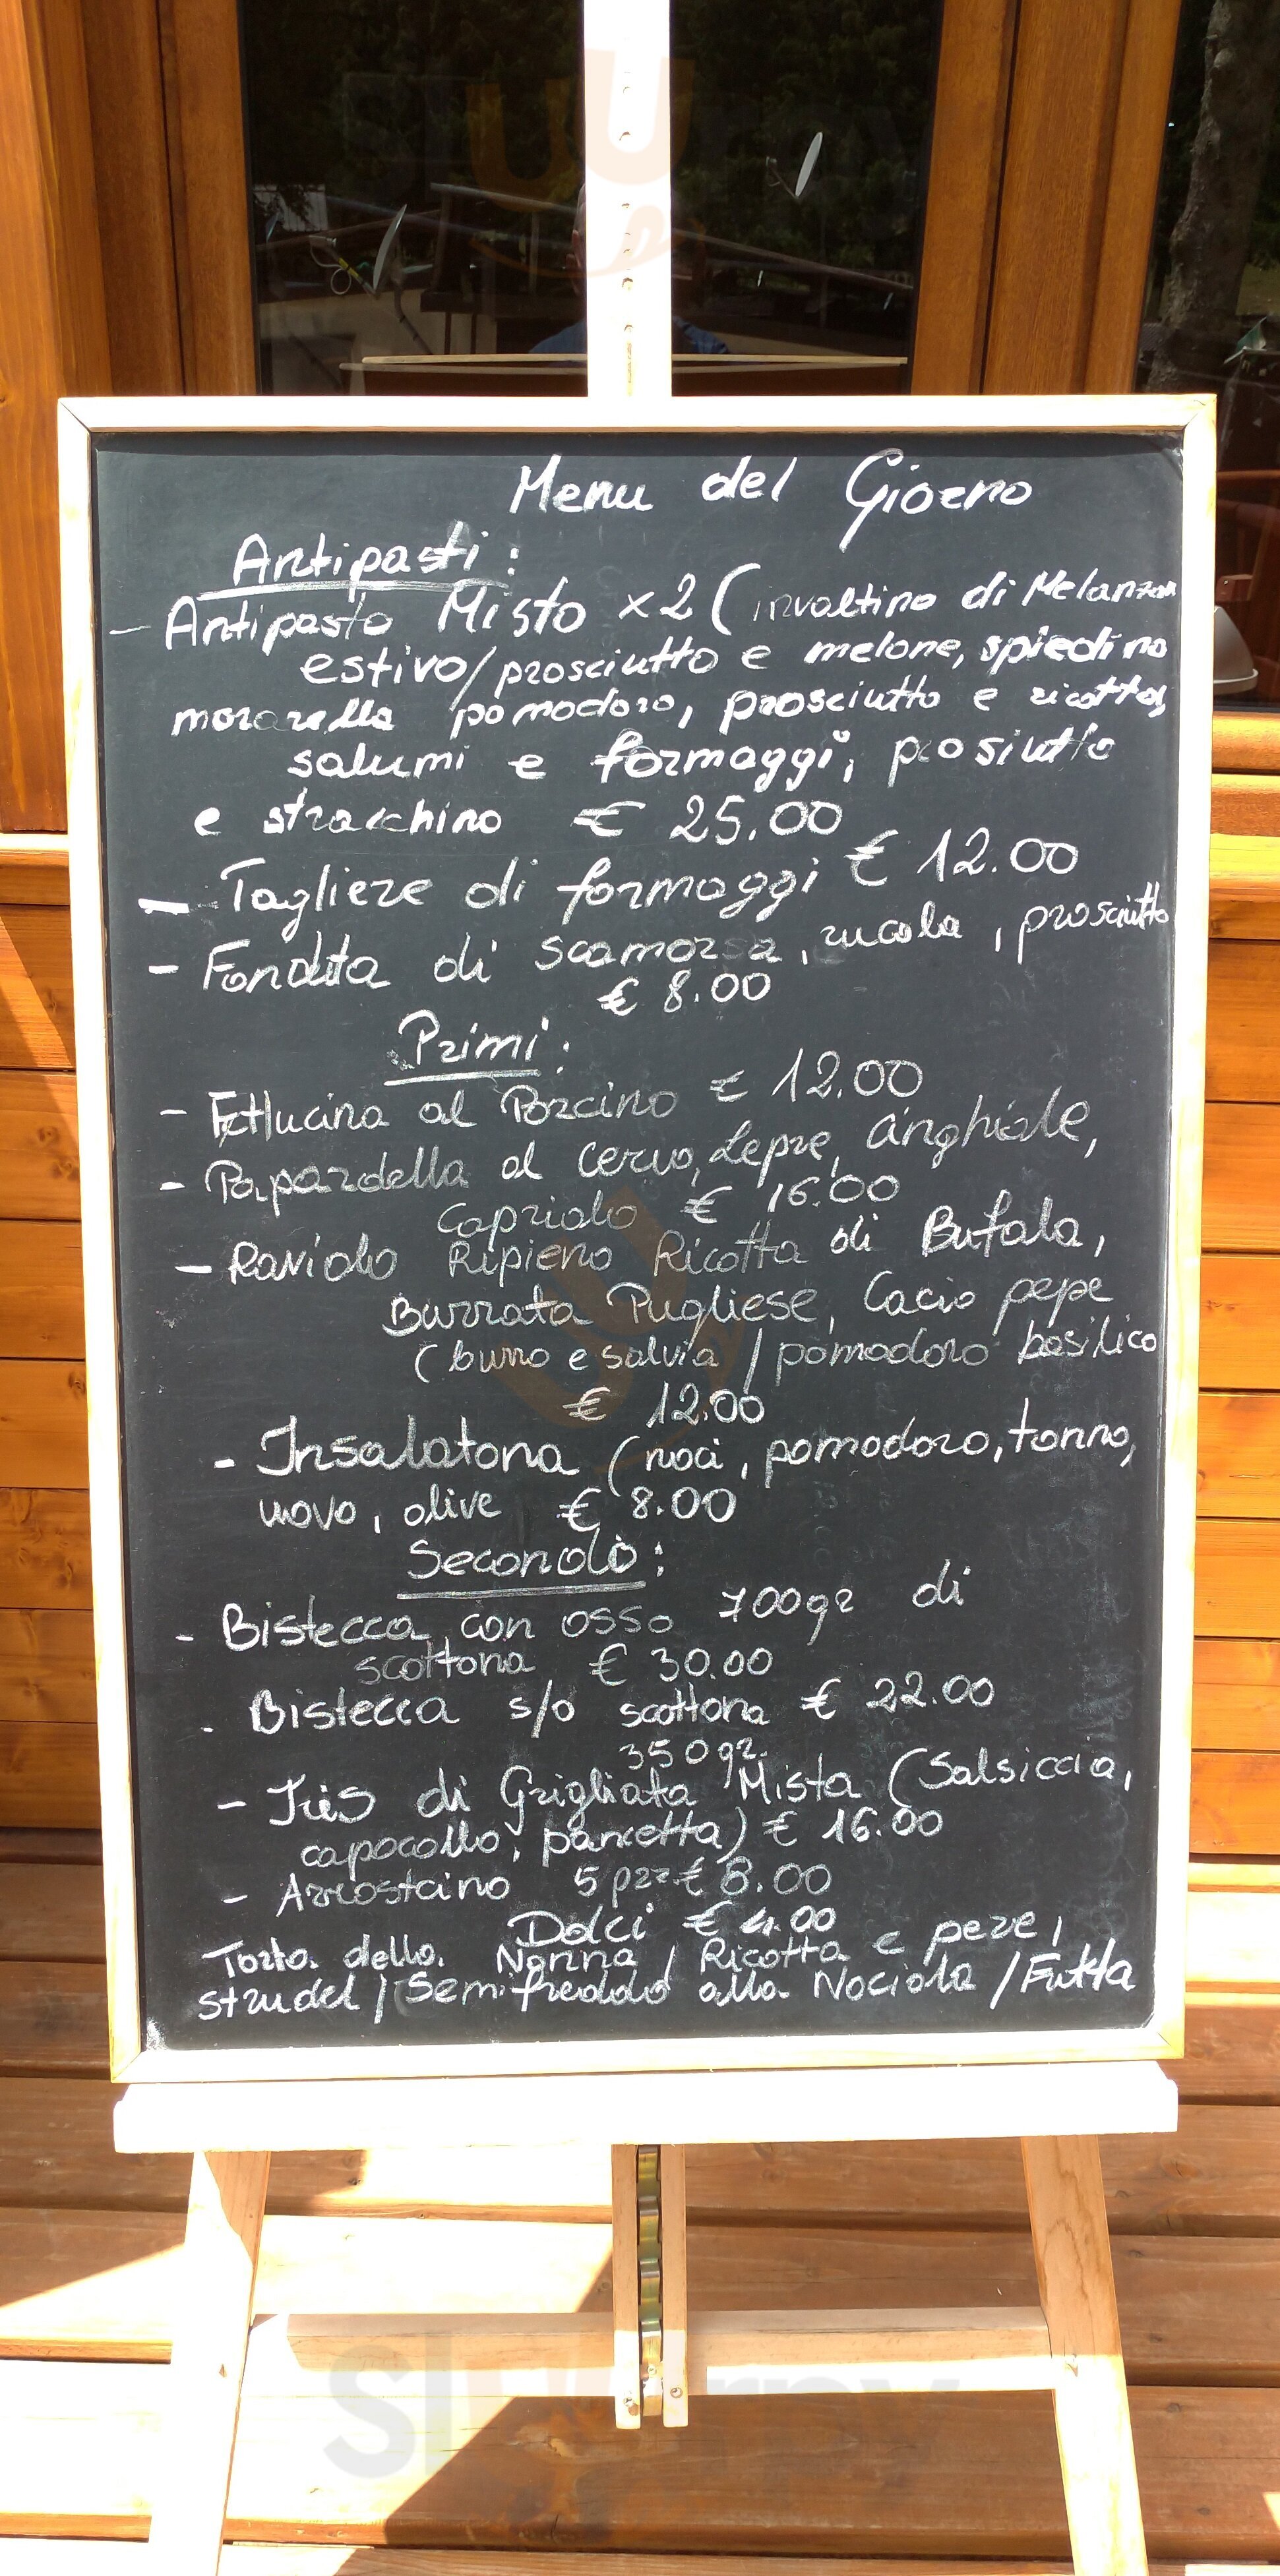 Menu del Giorno
Antipasti:
- Antipasto Misto x2 (involtino di Melanzan
estivo/prosciutto e melone, spiedino
mozzarella pomodoro, prosciutto e ricotta,
salumi e formaggi, prosiutto
e stracchino € 25.00
- Tagliere di formaggi € 12.00
- Fonduta di scamorza, rucola, prosciutto
€ 8.00
Primi:
- Fettucina al Porcino € 12.00
- Papardella al cervo, Lepre, cinghiale,
capriolo € 16.00
- Raviolo Ripieno Ricotta di Bufala,
Burrata Pugliese, Cacio pepe
(burro e salvia / pomodoro basilico
€ 12.00
- Insalatona (noci, pomodoro, tonno,
uovo, olive € 8.00
Secondo:
- Bistecca con osso 700gr di
scottona € 30.00
- Bistecca s/o scottona € 22.00
350gr.
- Tris di Grigliata Mista (Salsiccia,
capocollo, pancetta) € 16.00
- Arrostcino 5 pzz € 8.00
Dolci € 4.00
Torta della Nonna / Ricotta e pere /
strudel / Semifreddo alla Nociola / Futta
Slurpy